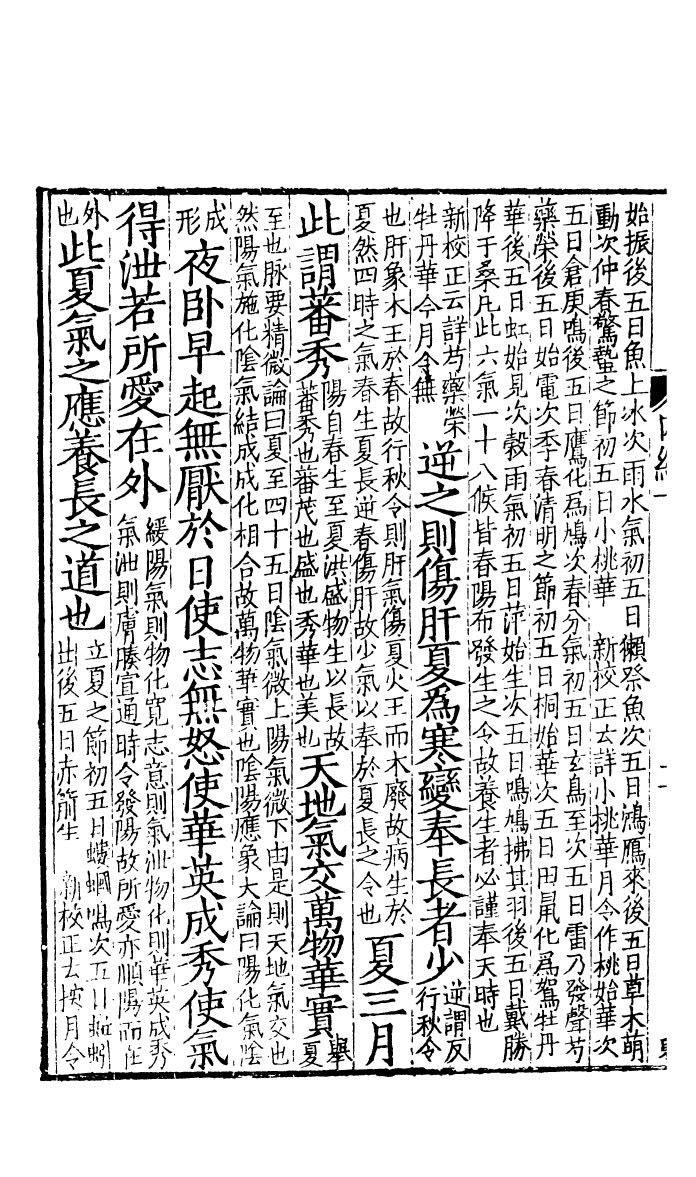 始振後五日魚上冰次雨水氣初五日獺祭魚次五日鴻鴈來後五日草木萌
動次仲春驚蟄之節初五日小桃華　新校正云詳小桃華月令作桃始華次
五日倉庚鳴後五日鷹化爲鳩次春分氣初五日玄鳥至次五日雷乃發聲芍
藥榮後五日始電次季春清明之節初五日桐始華次五日田鼠化爲鴽牡丹
華後五日虹始見次穀雨氣初五日萍始生次五日鳴鳩拂其羽後五日戴勝
降于桑凡此六氣一十八候皆春陽布發生之令故養生者必謹奉天時也
新校正云詳芍藥榮
牡丹華今月令無
逆之則傷肝夏爲寒變奉長者少
逆謂反
行秋令
也肝象木王於春故行秋令則肝氣傷夏火王而木廢故病生於
夏然四時之氣春生夏長逆春傷肝故少氣以奉於夏長之令也
夏三月
此謂蕃秀
陽自春生至夏洪盛物生以長故
蕃秀也蕃茂也盛也秀華也美也
天地氣交萬物華實
舉
夏
至也脉要精微論曰夏至四十五日陰氣微上陽氣微下由是則天地氣交也
然陽氣施化陰氣結成成化相合故萬物華實也陰陽應象大論曰陽化氣陰
成
形
夜卧早起無厭於日使志無怒使華英成秀使氣
得泄若所愛在外
緩陽氣則物化寬志意則氣泄物化則華英成秀
氣泄則膚腠宣通時令發陽故所愛亦順陽而在
外
也
此夏氣之應養長之道也
立夏之節初五日螻蟈鳴次五日蚯蚓
出後五日赤箭生　新校正云按月令